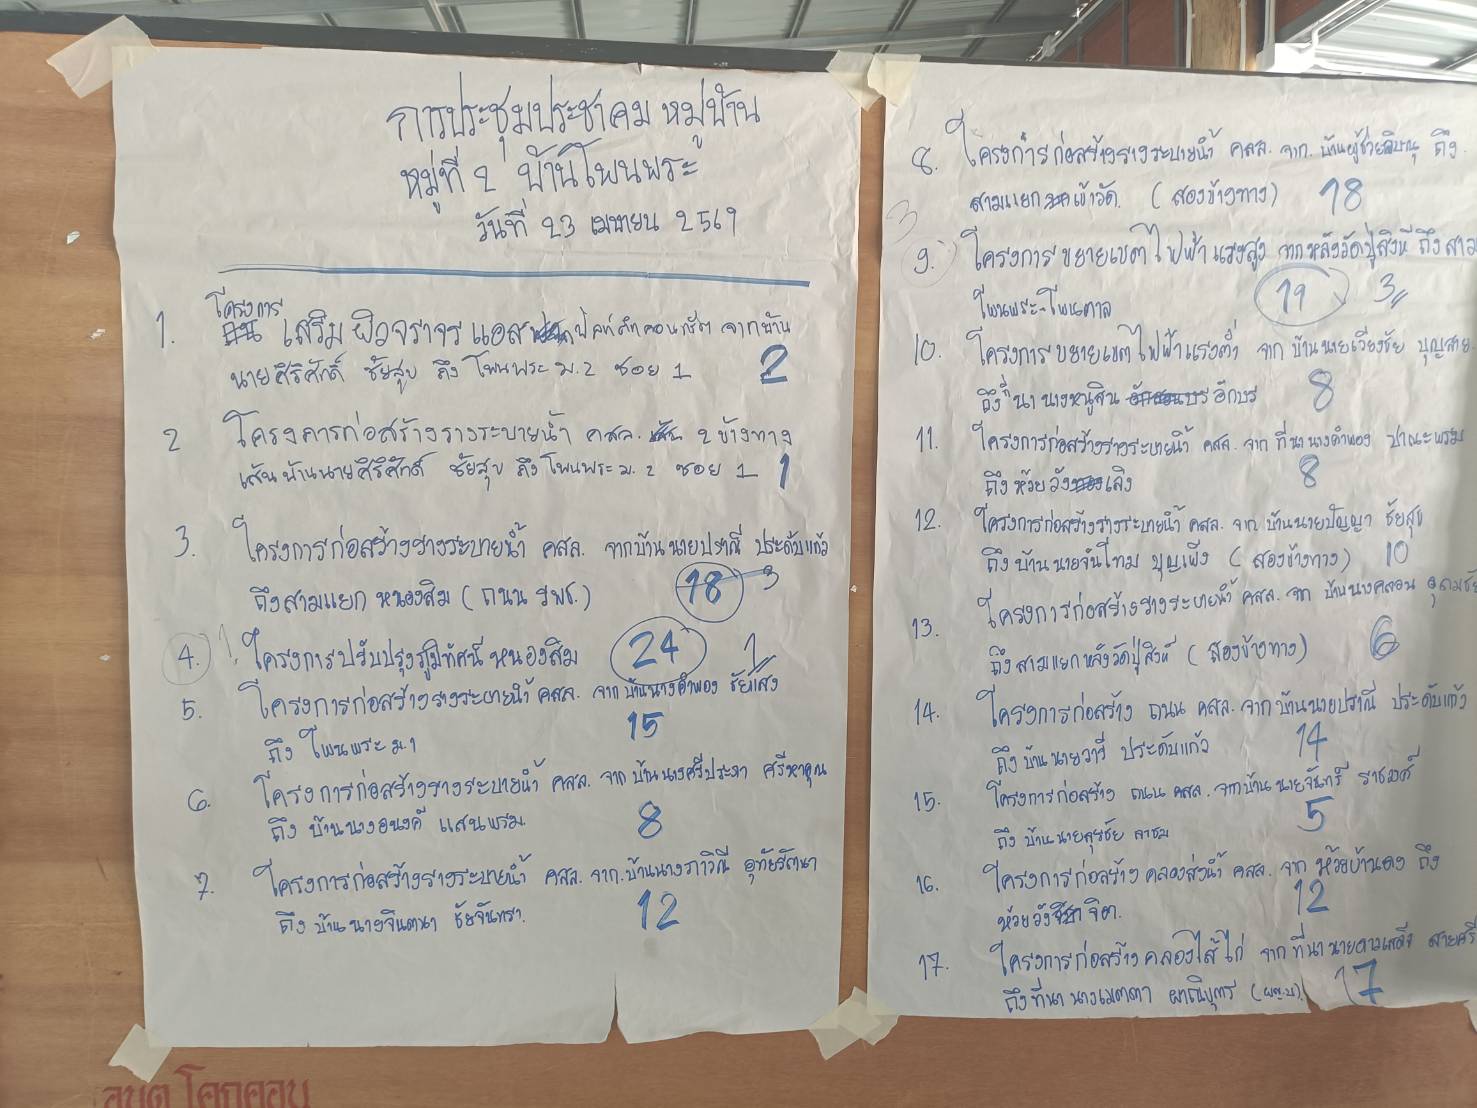 การประชุมประชาคม หมู่บ้าน
หมู่ที่ 2 บ้านโพนพระ
วันที่ 23 เมษายน 2569
1. โครงการ เสริมผิวจราจร แอสฟัลท์ติกคอนกรีต จากบ้าน
นายศิริศักดิ์ ชัยสุข ถึง โพนพระ ม.2 ซอย 1 2
2 โครงการก่อสร้างรางระบายน้ำ คสล. 2 ข้างทาง
เส้นบ้านนายศิริศักดิ์ ชัยสุข ถึงโพนพระ ม.2 ซอย 1 1
3. โครงการก่อสร้างรางระบายน้ำ คสล. จากบ้านนายปราณี ประดับแก้ว
ถึงสามแยก หนองสิม (ถนน รพช.) 18 3
4. 1. โครงการปรับปรุงภูมิทัศน์ หนองสิม 24 1
5. โครงการก่อสร้างรางระบายน้ำ คสล. จากบ้านนางคำพอง ชัยแสง
ถึง โพนพระ ม.1 15
6. โครงการก่อสร้างรางระบายน้ำ คสล. จากบ้านนางศรีประภา ศรีหาคุณ
ถึง บ้านนางอนงค์ แสนพรม 8
7. โครงการก่อสร้างรางระบายน้ำ คสล. จาก.บ้านนางภาวิณี อุทัยรัตนา
ถึง บ้าน นายจินตนา ชัยจันทรา. 12
8. โครงการก่อสร้างรางระบายน้ำ คสล. จาก. บ้านผู้ช่วย ถึง
สามแยก เข้าวัด. (สองข้างทาง) 18
3
9. โครงการขยายเขตไฟฟ้าแรงสูง จากหลังวัดปู่สิงห์ ถึงสาม
โพนพระ-โพนตาล 19 3
10. โครงการขยายเขตไฟฟ้าแรงต่ำ จากบ้านนายเวียงชัย บุญสาย
ถึงที่นา นางหนูสิน อักษร 8
11. โครงการก่อสร้างรางระบายน้ำ คสล. จาก ที่นานางคำพอง ปาณะพรม
ถึงห้วยวังเลิง 8
12. โครงการก่อสร้างรางระบายน้ำ คสล. จาก บ้านนายปัญญา ชัยสุข
ถึงบ้านนายจันโทม บุญเพ็ง (สองข้างทาง) 10
13. โครงการก่อสร้างรางระบายน้ำ คสล. จาก บ้านนางคลอน
ถึงสามแยกหลังวัดปู่สิงห์ (สองข้างทาง) 6
14. โครงการก่อสร้าง ถนน คสล. จากบ้านนายปราณี ประดับแก้ว
ถึงบ้านนายวารี ประดับแก้ว 14
15. โครงการก่อสร้าง ถนน คสล. จากบ้านนายจันทรี ราชวงศ์
ถึง บ้านนายสุรชัย ลาขม 5
16. โครงการก่อสร้าง คลองส่งน้ำ คสล. จาก ห้วยบ้าน ถึง
ห้วยวัง 12
17. โครงการก่อสร้างคลองไส้ไก่ จากที่นานายดาวเสด็จ สายศรี
ถึงที่นา นางเมตตา ผาณิบุตร 17
อบต โคกคอน